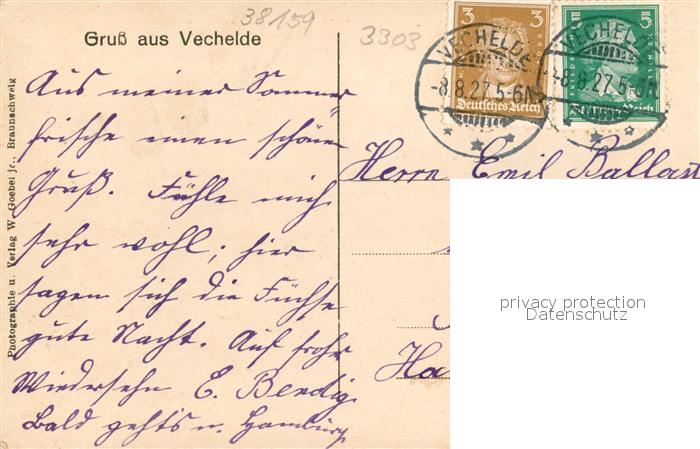 38159
3303
Gruß aus Vechelde
Aus meiner Sommer
frische einen schönen
Gruß. Fühle mich
sehr wohl; hier
sagen sich die Füchse
gute Nacht. Auf frohes
Wiedersehn E. Bendig.
Bald gehts n. Hamburg
Photographie u. Verlag W. Goebel jr., Braunschweig
3 3
Deutsches Reich
VECHELDE
-8.8.27.5-6N
5 5
Deutsches Reich
VECHELDE
-8.8.27.5-6N
Herrn Emil Ballast
Ha
privacy protection
Datenschutz